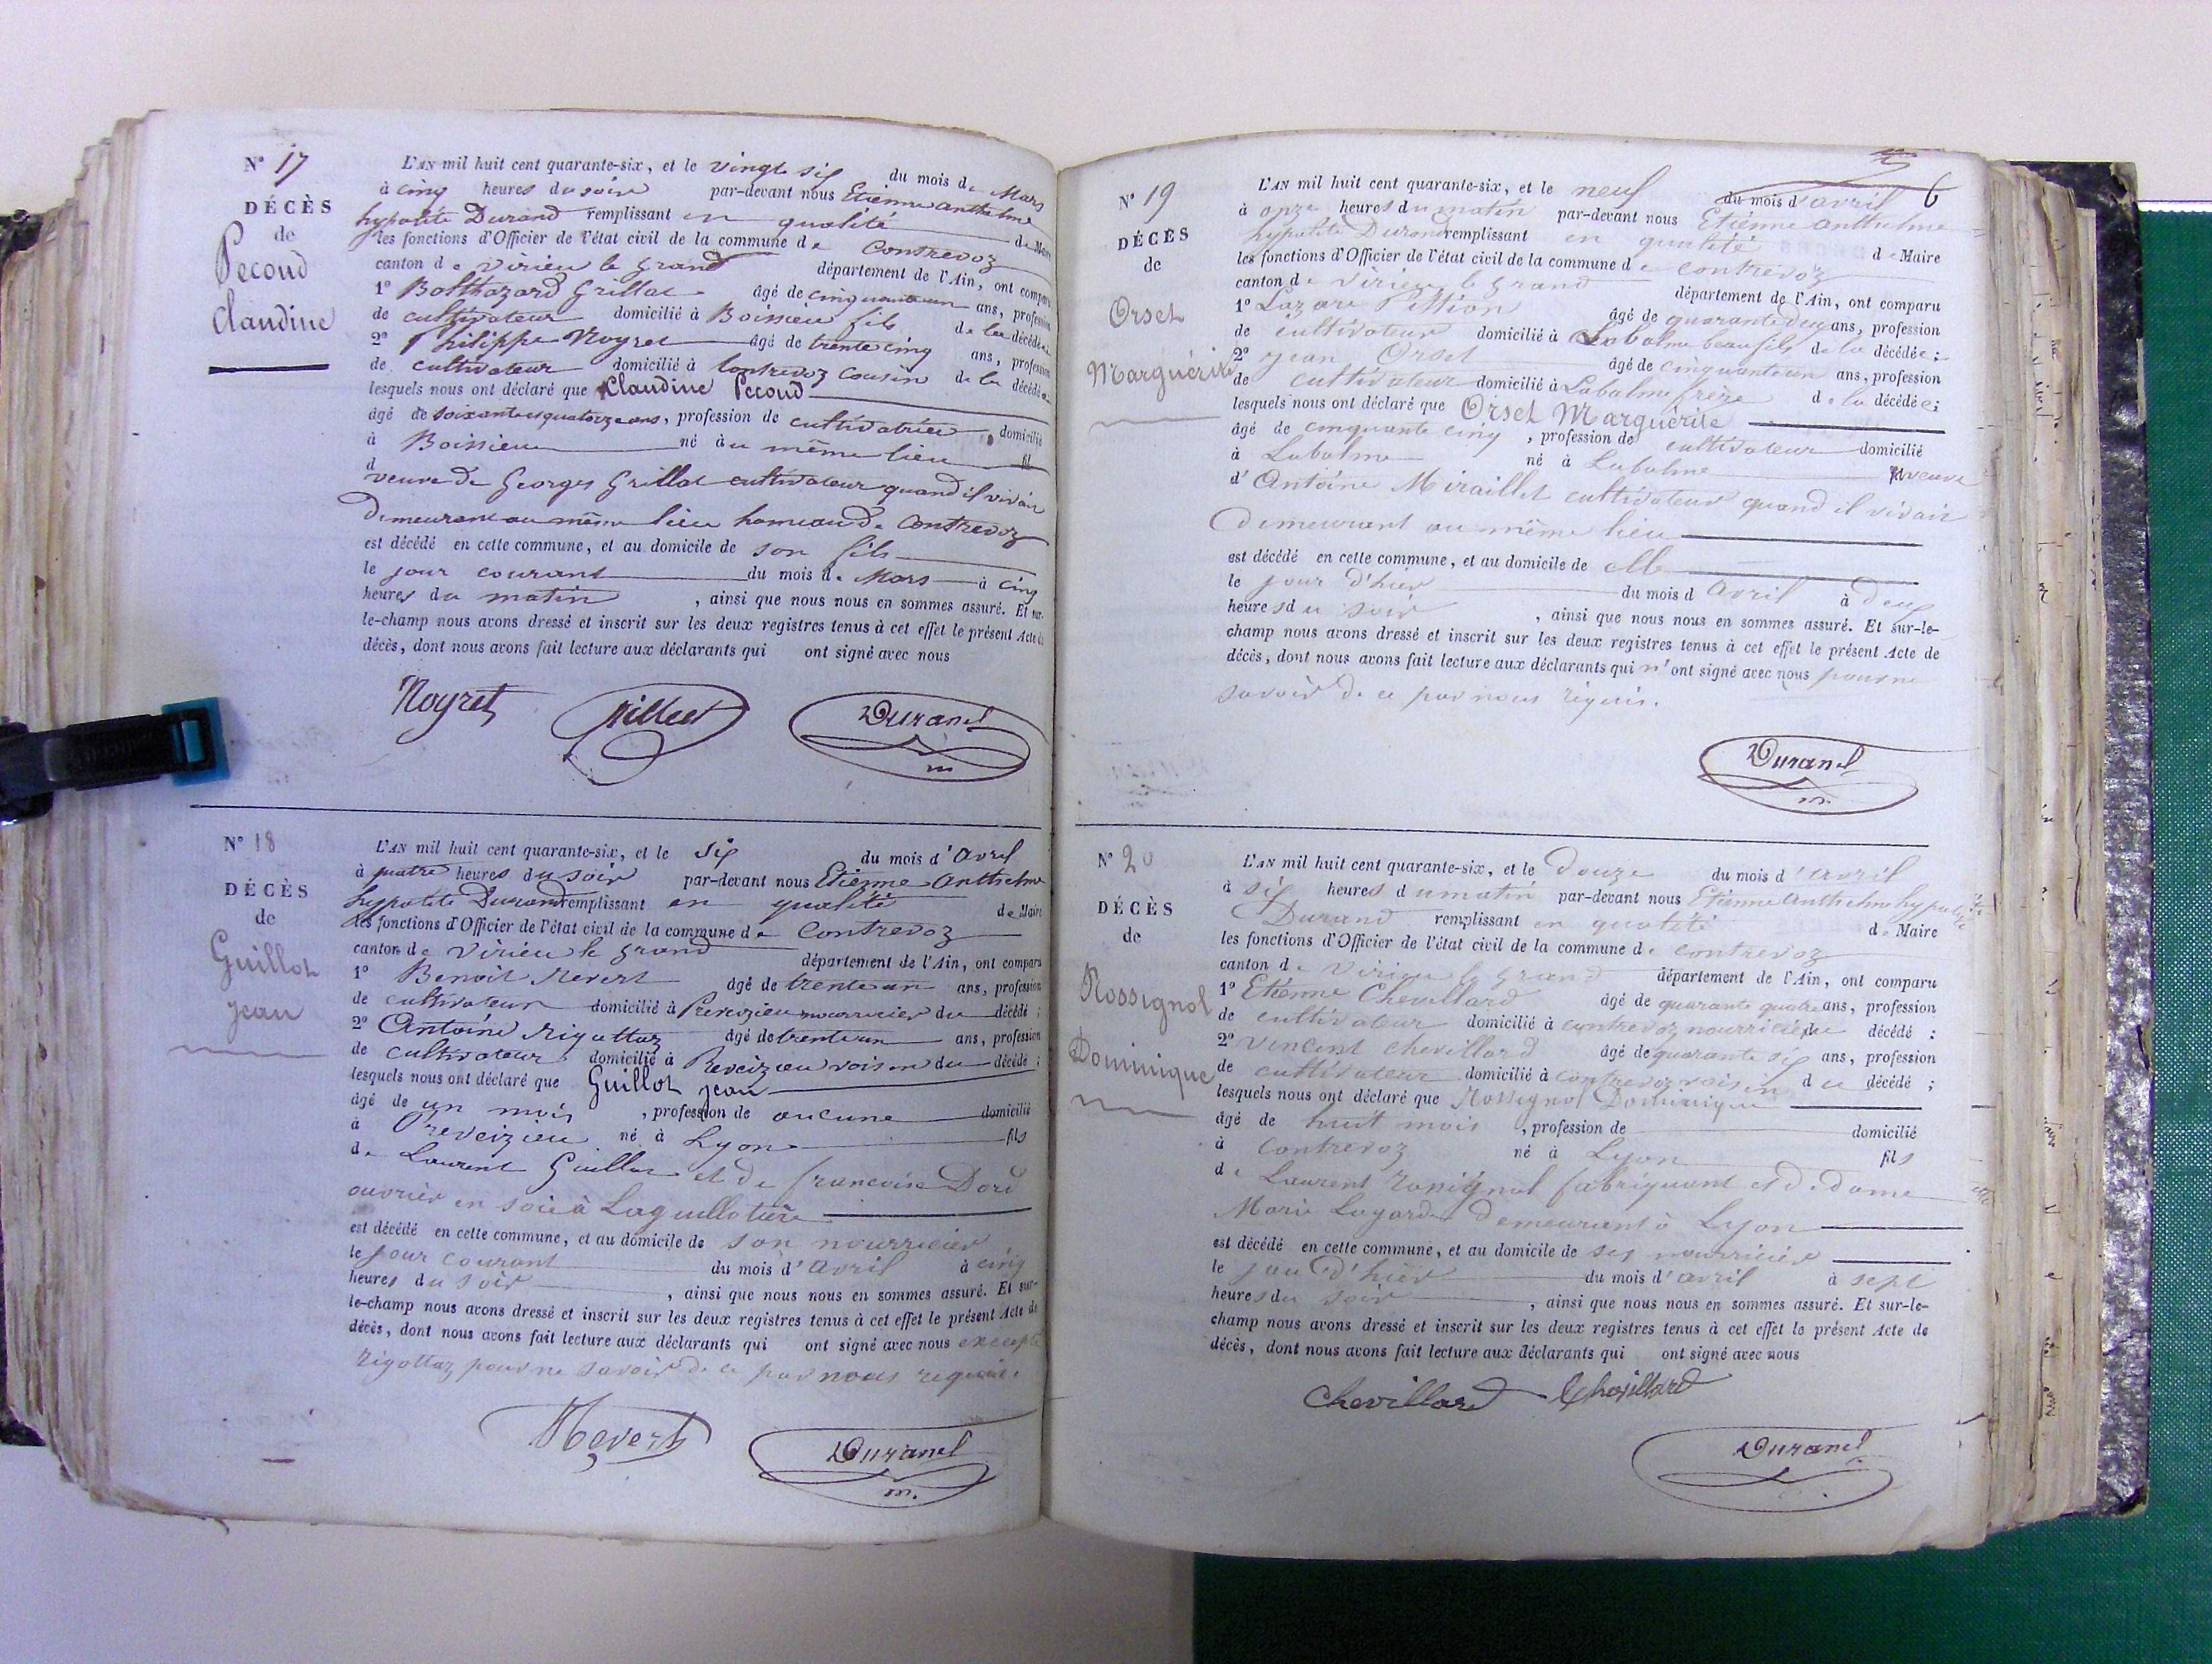 N° 17
DÉCÈS
de
Pecoud
Claudine
L'AN mil huit cent quarante-six, et le vingt six du mois de Mars
à cinq heures du soir par-devant nous Etienne anthelme
hypolite Durand remplissant en qualité de Maire
les fonctions d'Officier de l'état civil de la commune de Contrevoz
canton de Virieu le grand département de l'Ain, ont comparu
1° Balthazard Grillat âgé de cinquante un ans, profession
de cultivateur domicilié à Boissieu fils de la décédée
2° Philippe Noyret âgé de trente cinq ans, profession
de cultivateur domicilié à Contrevoz cousin de la décédée
lesquels nous ont déclaré que Claudine Pecoud
âgé de soixante et quatorze ans, profession de cultivatrice domicilié
à Boissieu né à u même lieu fil
d veuve de Georges Grillat cultivateur quand il vivait
Demeurant au même lieu hameau de Contrevoz
est décédé en cette commune, et au domicile de son fils
le jour courant du mois de Mars à cinq
heures du matin , ainsi que nous nous en sommes assuré. Et sur-
le-champ nous avons dressé et inscrit sur les deux registres tenus à cet effet le présent Acte de
décès, dont nous avons fait lecture aux déclarants qui ont signé avec nous
Noyret Grillat Durand
m
N° 18
DÉCÈS
de
Guillot
jean
L'AN mil huit cent quarante-six, et le six du mois d'avril
à quatre heures du soir par-devant nous Etienne Anthelme
hypolite Durand remplissant en qualité de Maire
les fonctions d'Officier de l'état civil de la commune de Contrevoz
canton de Virieu le grand département de l'Ain, ont comparu
1° Benoit Revert âgé de trente un ans, profession
de cultivateur domicilié à Preveizieu nourricier du décédé ;
2° Antoine Rigottaz âgé de trente un ans, profession
de cultivateur domicilié à Preveizieu voisin du décédé ;
lesquels nous ont déclaré que Guillot jean
âgé de un mois , profession de aucune domicilié
à Preveizieu né à Lyon fils
de Laurent Guillot et de francoise Dord
ouvrier en soie à Laguillotière
est décédé en cette commune, et au domicile de son nourricier
le jour courant du mois d'avril à cinq
heures du soir , ainsi que nous nous en sommes assuré. Et sur-
le-champ nous avons dressé et inscrit sur les deux registres tenus à cet effet le présent Acte de
décès, dont nous avons fait lecture aux déclarants qui ont signé avec nous excepté
Rigottaz pour ne savoir de ce par nous requis.
Revert Durand
m.
6
N° 19
DÉCÈS
de
Orset
Marguérite
L'AN mil huit cent quarante-six, et le neuf du mois d'avril
à onze heures du matin par-devant nous Etienne anthelme
hypolite Durand remplissant en qualité de Maire
les fonctions d'Officier de l'état civil de la commune de Contrevoz
canton de Virieu le grand département de l'Ain, ont comparu
1° Lazare Pittion âgé de quarante deux ans, profession
de cultivateur domicilié à Labalme beau fils de la décédée ;
2° jean Orset âgé de cinquante un ans, profession
de cultivateur domicilié à Labalme frère de la décédée ;
lesquels nous ont déclaré que Orset Marguérite
âgé de cinquante cinq , profession de cultivateur domicilié
à Labalme né à Labalme veuve
d'Antoine Miraillet cultivateur quand il vivait
Demeurant au même lieu
est décédé en cette commune, et au domicile de elle
le jour d'hier du mois d avril à deux
heures du soir , ainsi que nous nous en sommes assuré. Et sur-le-
champ nous avons dressé et inscrit sur les deux registres tenus à cet effet le présent Acte de
décès, dont nous avons fait lecture aux déclarants qui n'ont signé avec nous pour ne
savoir de ce par nous requis.
Durand
m.
N° 20
DÉCÈS
de
Rossignol
Dominique
L'AN mil huit cent quarante-six, et le Douze du mois d'avril
à six heures du matin par-devant nous Etienne Anthelme hypolite
Durand remplissant en qualité de Maire
les fonctions d'Officier de l'état civil de la commune de contrevoz
canton de Virieu le grand département de l'Ain, ont comparu
1° Etienne Chevillard âgé de quarante quatre ans, profession
de cultivateur domicilié à contrevoz nourricier du décédé :
2° Vincent chevillard âgé de quarante six ans, profession
de cultivateur domicilié à contrevoz voisin du décédé ;
lesquels nous ont déclaré que Rossignol Dominique
âgé de huit mois , profession de domicilié
à contrevoz né à Lyon fils
de Laurent Rossignol fabriquant et de dame
Marie Lagarde demeurant à Lyon
est décédé en cette commune, et au domicile de ses nourricier
le jour d'hier du mois d'avril à sept
heures du soir , ainsi que nous nous en sommes assuré. Et sur-le-
champ nous avons dressé et inscrit sur les deux registres tenus à cet effet le présent Acte de
décès, dont nous avons fait lecture aux déclarants qui ont signé avec nous
Chevillard Chevillard
Durand